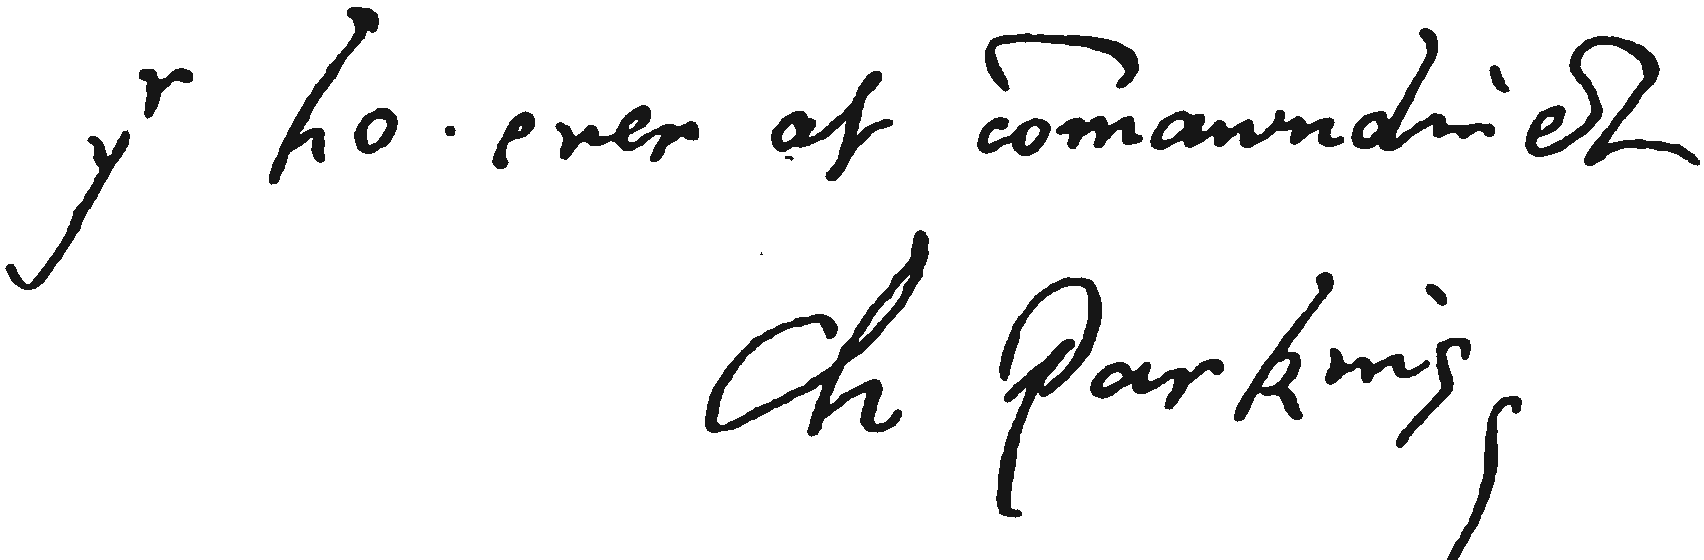 yʳ ho. ever at com̄aundmẽt
Ch Parkins